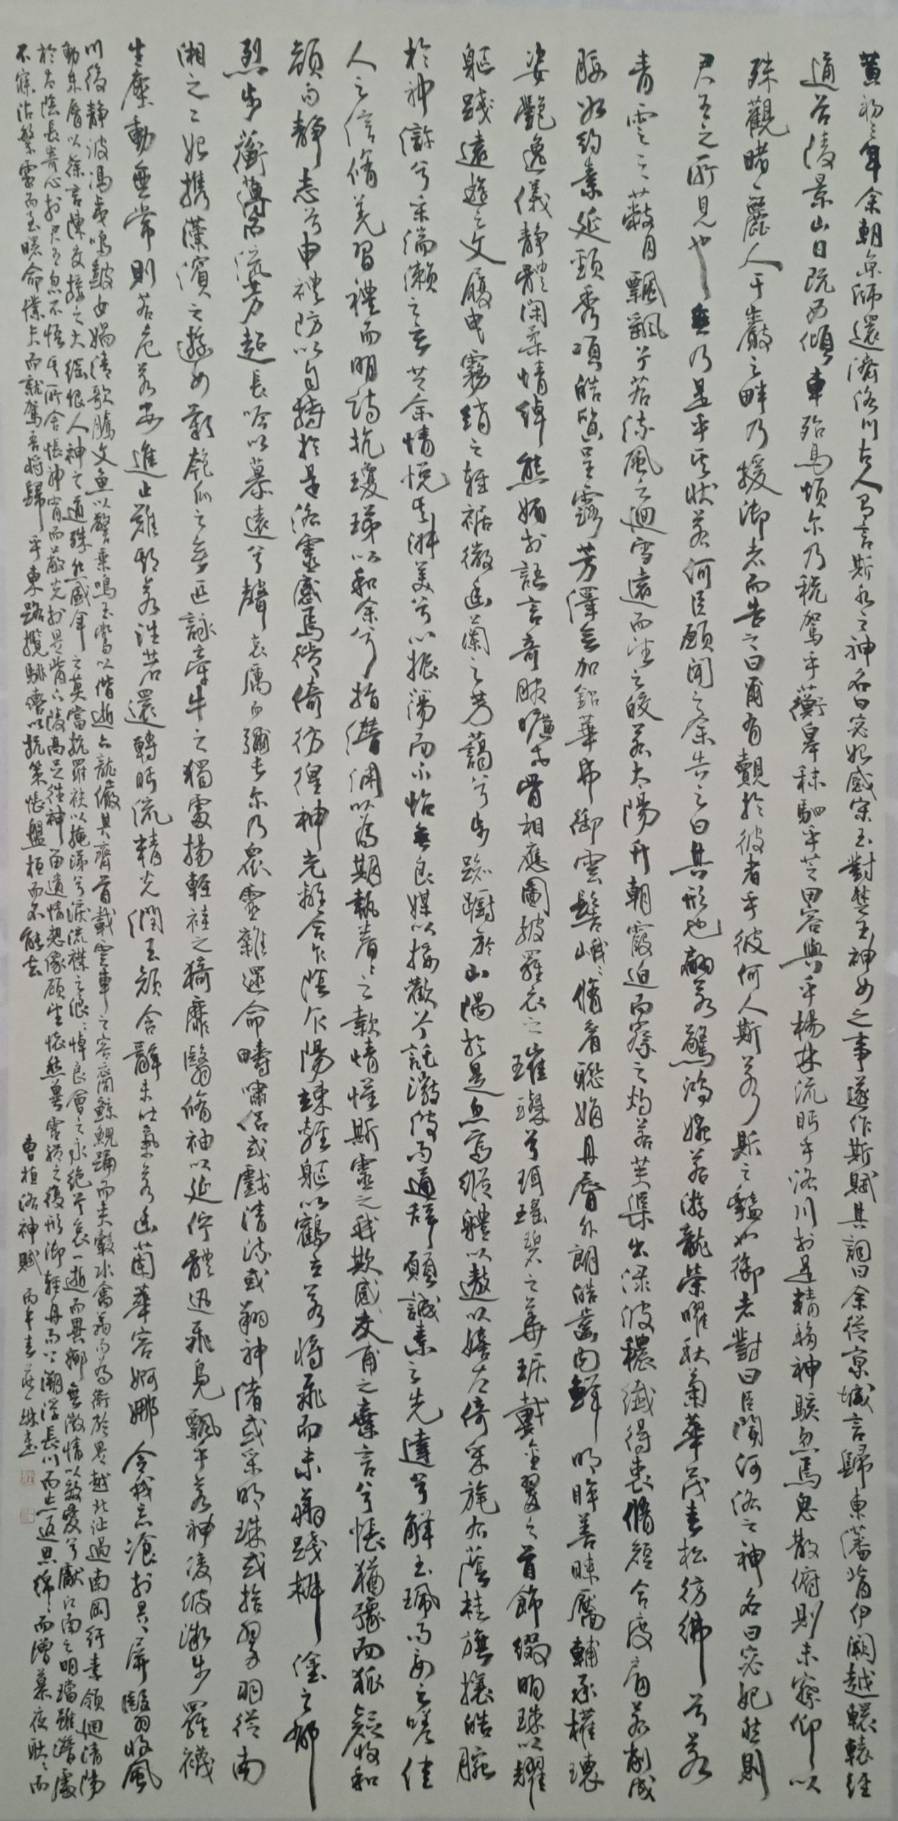 黄初三年余朝京師還濟洛川古人有言斯水之神名曰宓妃感宋玉對楚王神女之事遂作斯賦其詞曰余從京域言歸東藩背伊闕越轘轅經
通谷陵景山日既西傾車殆馬煩尔乃税駕乎蘅皋秣駟乎芝田容與乎楊林流眄乎洛川於是精移神駭忽焉思散俯則未察仰以
殊觀睹一麗人于巖之畔乃援御者而告之曰爾有覿於彼者乎彼何人斯若斯之豔也御者對曰臣聞河洛之神名曰宓妃然則
君王之所見也無乃是乎其狀若何臣願聞之余告之曰其形也翩若驚鴻婉若游龍榮曜秋菊華茂春松彷彿兮若
青雲之蔽月飄飖兮若流風之迴雪遠而望之皎若太陽升朝霞迫而察之灼若芙渠出渌波穠纖得衷脩短合度肩若削成
腰如約素延頸秀項皓質呈露芳澤無加鉛華弗御雲髻峨峨脩眉聯娟丹脣外朗皓齒内鮮明眸善睞靨輔承權瓌
姿艷逸儀靜體閑柔情綽態媚於語言奇服曠世骨相應圖披羅衣之璀璨兮珥瑤碧之華琚戴金翠之首飾綴明珠以耀
軀踐遠遊之文履曳霧綃之輕裾微幽蘭之芳藹兮步踟躕於山隅於是忽焉縱體以遨以嬉左倚采旄右蔭桂旗攘皓腕
於神滸兮采湍瀨之玄芝余情悦其淑美兮心振蕩而不怡無良媒以接歡兮託微波而通辭願誠素之先達兮解玉珮而要之嗟佳
人之信脩羌習禮而明詩抗瓊珶以和余兮指潛淵以為期執眷眷之款情懼斯靈之我欺感交甫之棄言兮悵猶豫而狐疑收和
顔而靜志兮申禮防以自持於是洛靈感焉徙倚彷徨神光離合乍陰乍陽竦輕軀以鶴立若將飛而未翔踐椒塗之郁
烈步蘅薄而流芳超長吟以慕遠兮聲哀厲而彌長尔乃衆靈雜遝命疇嘯侣或戲清流或翔神渚或采明珠或拾翠羽從南
湘之二妃攜漢濱之遊女歎匏瓜之無匹詠牽牛之獨處揚輕袿之猗靡翳脩袖以延佇體迅飛凫飄乎若神凌波微步羅襪
生塵動無常則若危若安進止難期若往若還轉眄流精光潤玉顔含辭未吐氣若幽蘭華容婀娜令我忘飡於是屏翳收風
川后靜波馮夷鳴鼓女媧清歌騰文魚以警乘鳴玉鸞以偕逝六龍儼其齊首載雲車之容裔鯨鯢踊而夾轂水禽翔而為衛於是越北沚過南岡紆素領迴清陽
動朱脣以徐言陳交接之大綱恨人神之道殊兮怨盛年之莫當抗羅袂以掩涕兮淚流襟之浪浪悼良會之永絕兮哀一逝而異鄉無微情以效愛兮獻江南之明璫雖潛處
於太陰長寄心於君王忽不悟其所舍悵神宵而蔽光於是背下陵高足往神留遺情想像顧望懷愁冀靈體之復形御輕舟而上溯浮長川而忘返思綿綿而增慕夜耿耿而
不寐沾繁霜而至曙命僕夫而就駕吾將歸乎東路攬騑轡以抗策悵盤桓而不能去
曹植洛神賦